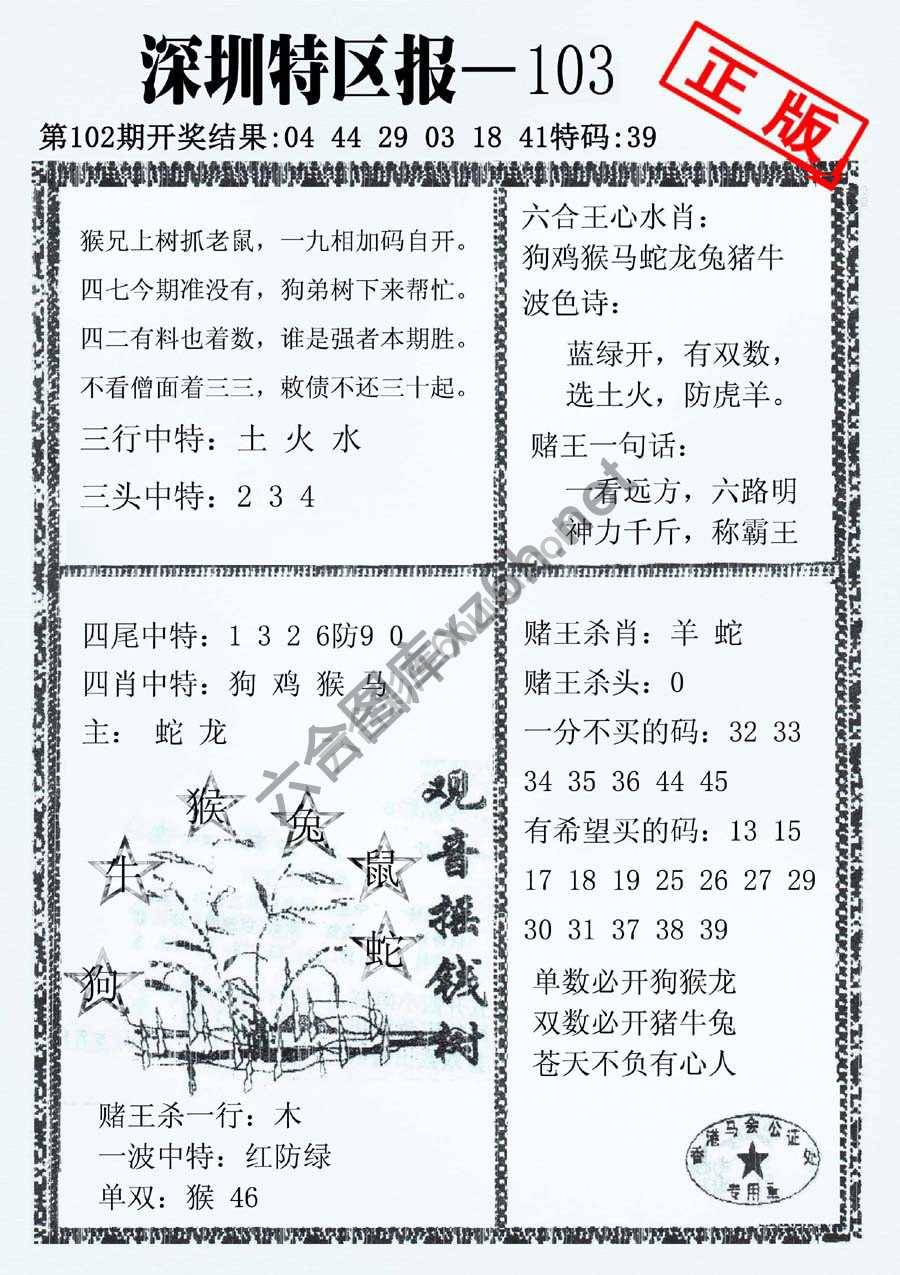 深圳特区报—103
正版
第102期开奖结果:04 44 29 03 18 41特码:39
猴兄上树抓老鼠，一九相加码自开。
四七今期准没有，狗弟树下来帮忙。
四二有料也着数，谁是强者本期胜。
不看僧面着三三，敕债不还三十起。
三行中特：土 火 水
三头中特：2 3 4
六合王心水肖：
狗鸡猴马蛇龙兔猪牛
波色诗：
蓝绿开，有双数，
选土火，防虎羊。
赌王一句话：
一看远方，六路明
神力千斤，称霸王
四尾中特：1 3 2 6防9 0
四肖中特：狗 鸡 猴 马
主： 蛇 龙
猴
兔
牛
鼠
蛇
狗
观音摇钱树
赌王杀一行：木
一波中特：红防绿
单双：猴 46
赌王杀肖：羊 蛇
赌王杀头：0
一分不买的码：32 33
34 35 36 44 45
有希望买的码：13 15
17 18 19 25 26 27 29
30 31 37 38 39
单数必开狗猴龙
双数必开猪牛兔
苍天不负有心人
香港马会公证处
专用章
六合图库xzlch.net